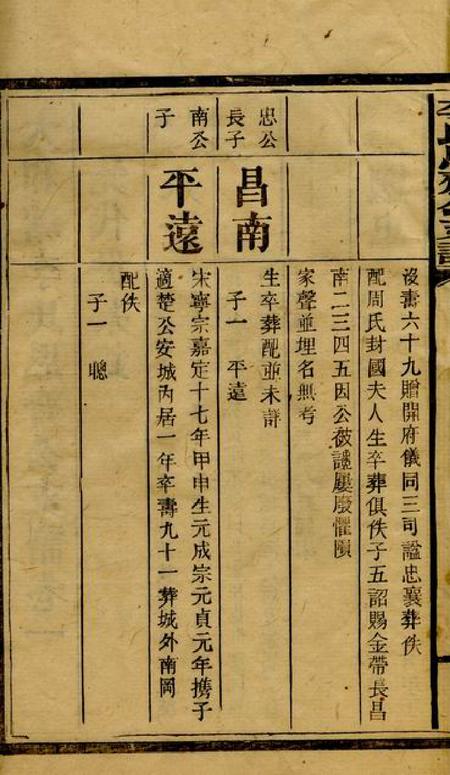 沒壽六十九贈開府儀同三司謚忠襄葬佚
配周氏封國夫人生卒葬俱佚子五詔賜金帶長昌
南二三四五因公被謹屢廢懼隕
家聲並埋名無考
忠公
長子
昌南
生卒葬配並未詳
子一 平遠
南公
子
平遠
宋寧宗嘉定十七年甲申生元成宗元貞元年携子
適楚公安城內居一年卒壽九十一葬城外南岡
配佚
子一 聰